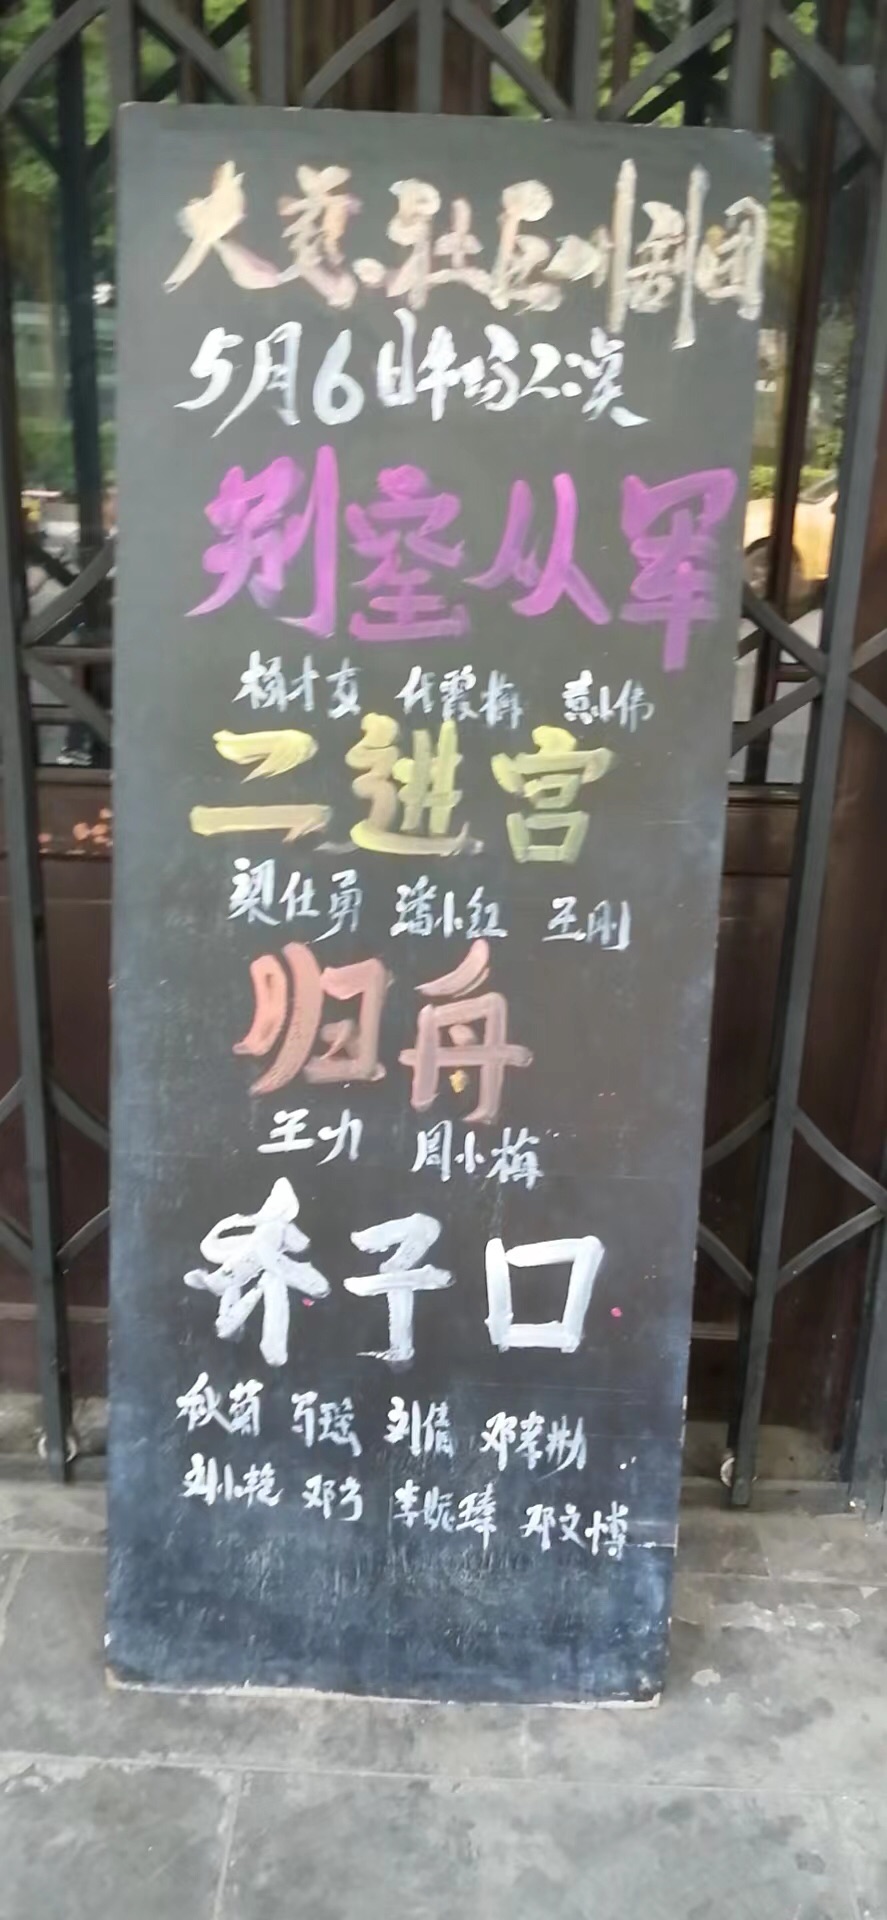 大慈社区川剧团
5月6日午场公演
别窑从军
杨才友 代霞梅 袁小伟
二进宫
梁仕勇 潘小红 王刚
归舟
王力 周小梅
乔子口
秋菊 马瑶 刘倩 邓孝勋
刘小艳 邓 李妮臻 邓文博